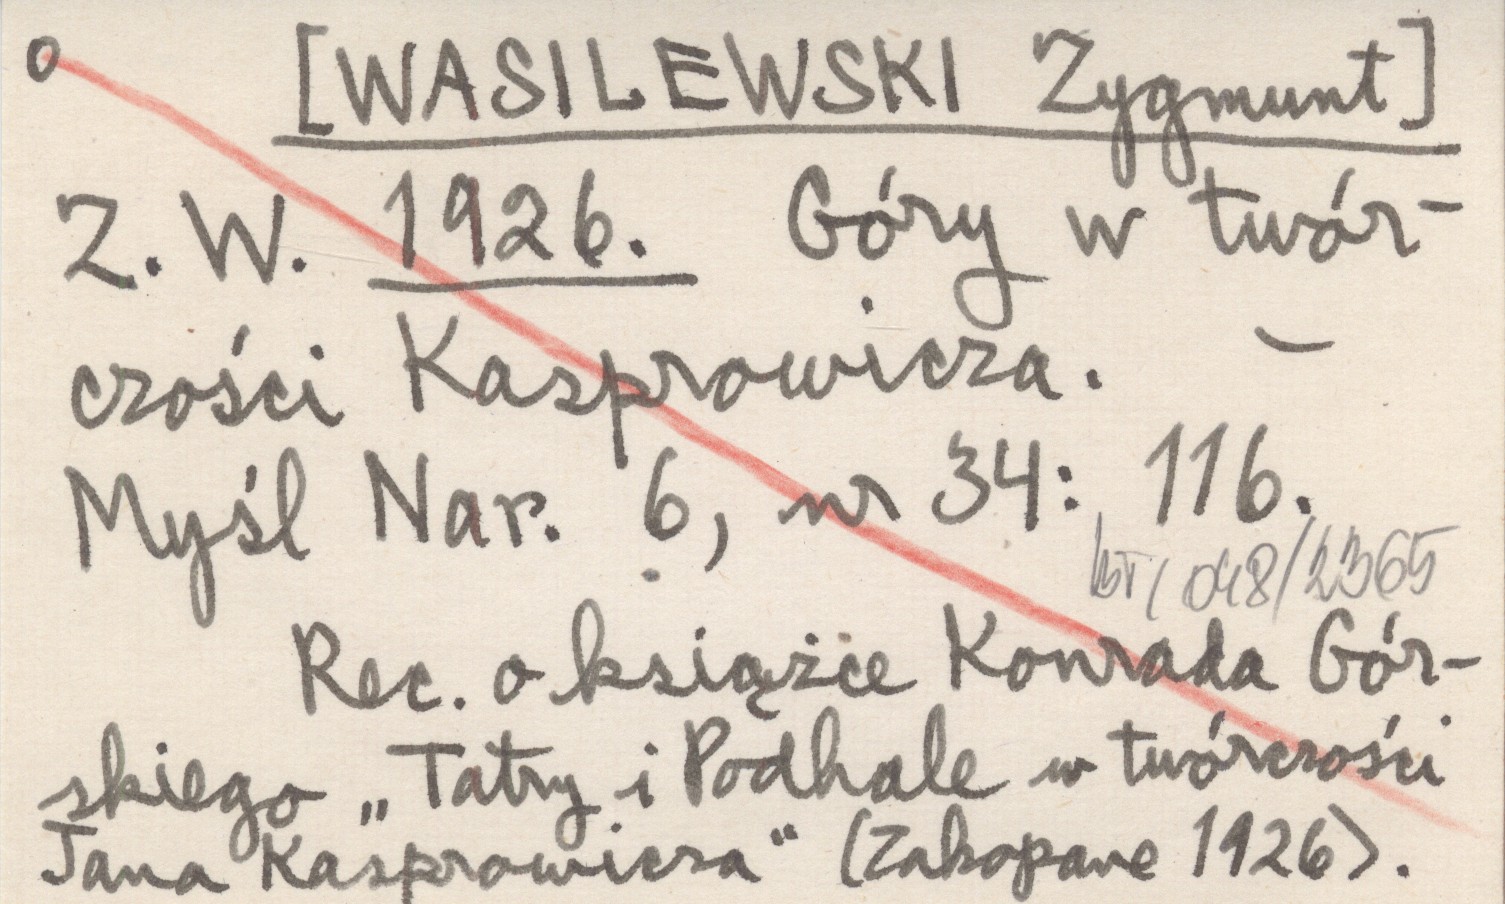 o [WASILEWSKI Zygmunt]
Z. W. 1926. Góry w twór-
czości Kasprowicza. –
Myśl Nar. 6, nr 34: 116.
048/2365
Rec. o książce Konrada Gór-
skiego „Tatry i Podhale w twórczości
Jana Kasprowicza“ (Zakopane 1926).